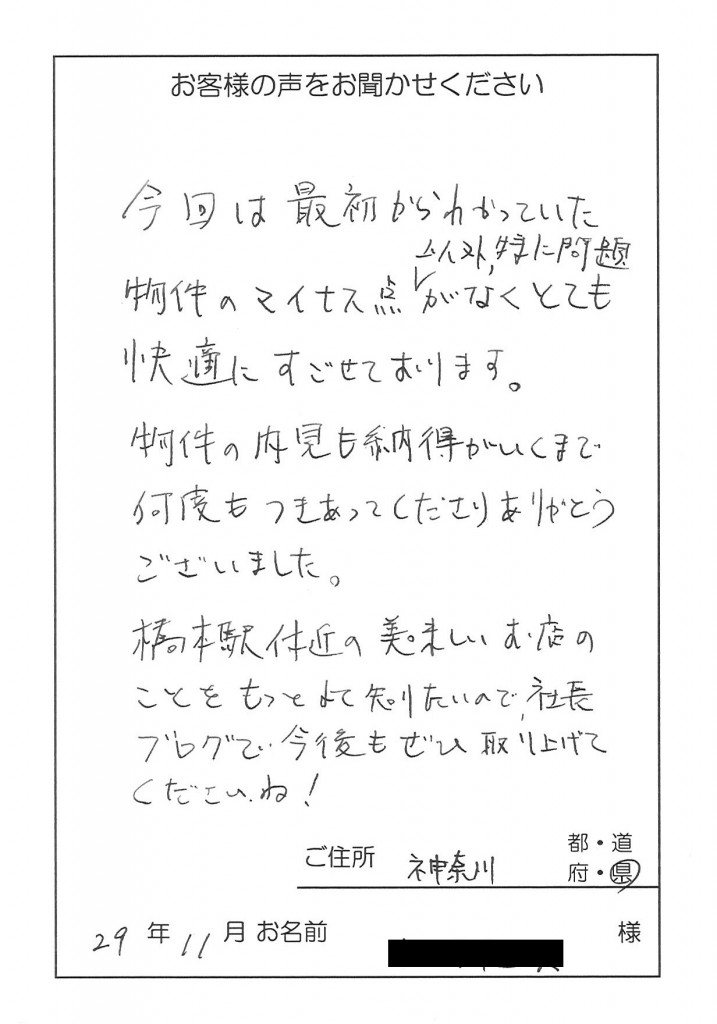 お客様の声をお聞かせください
今回は最初からわかっていた
以外,特に問題
物件のマイナス点がなくとても
快適にすごせております。
物件の内見も納得がいくまで
何度もつきあってくださりありがとう
ございました。
橋本駅付近の美味しいお店の
ことをもっとよく知りたいので,社長
ブログで今後もぜひ取り上げて
くださいね!
都・道
ご住所 神奈川
府・県
29年11月 お名前 様